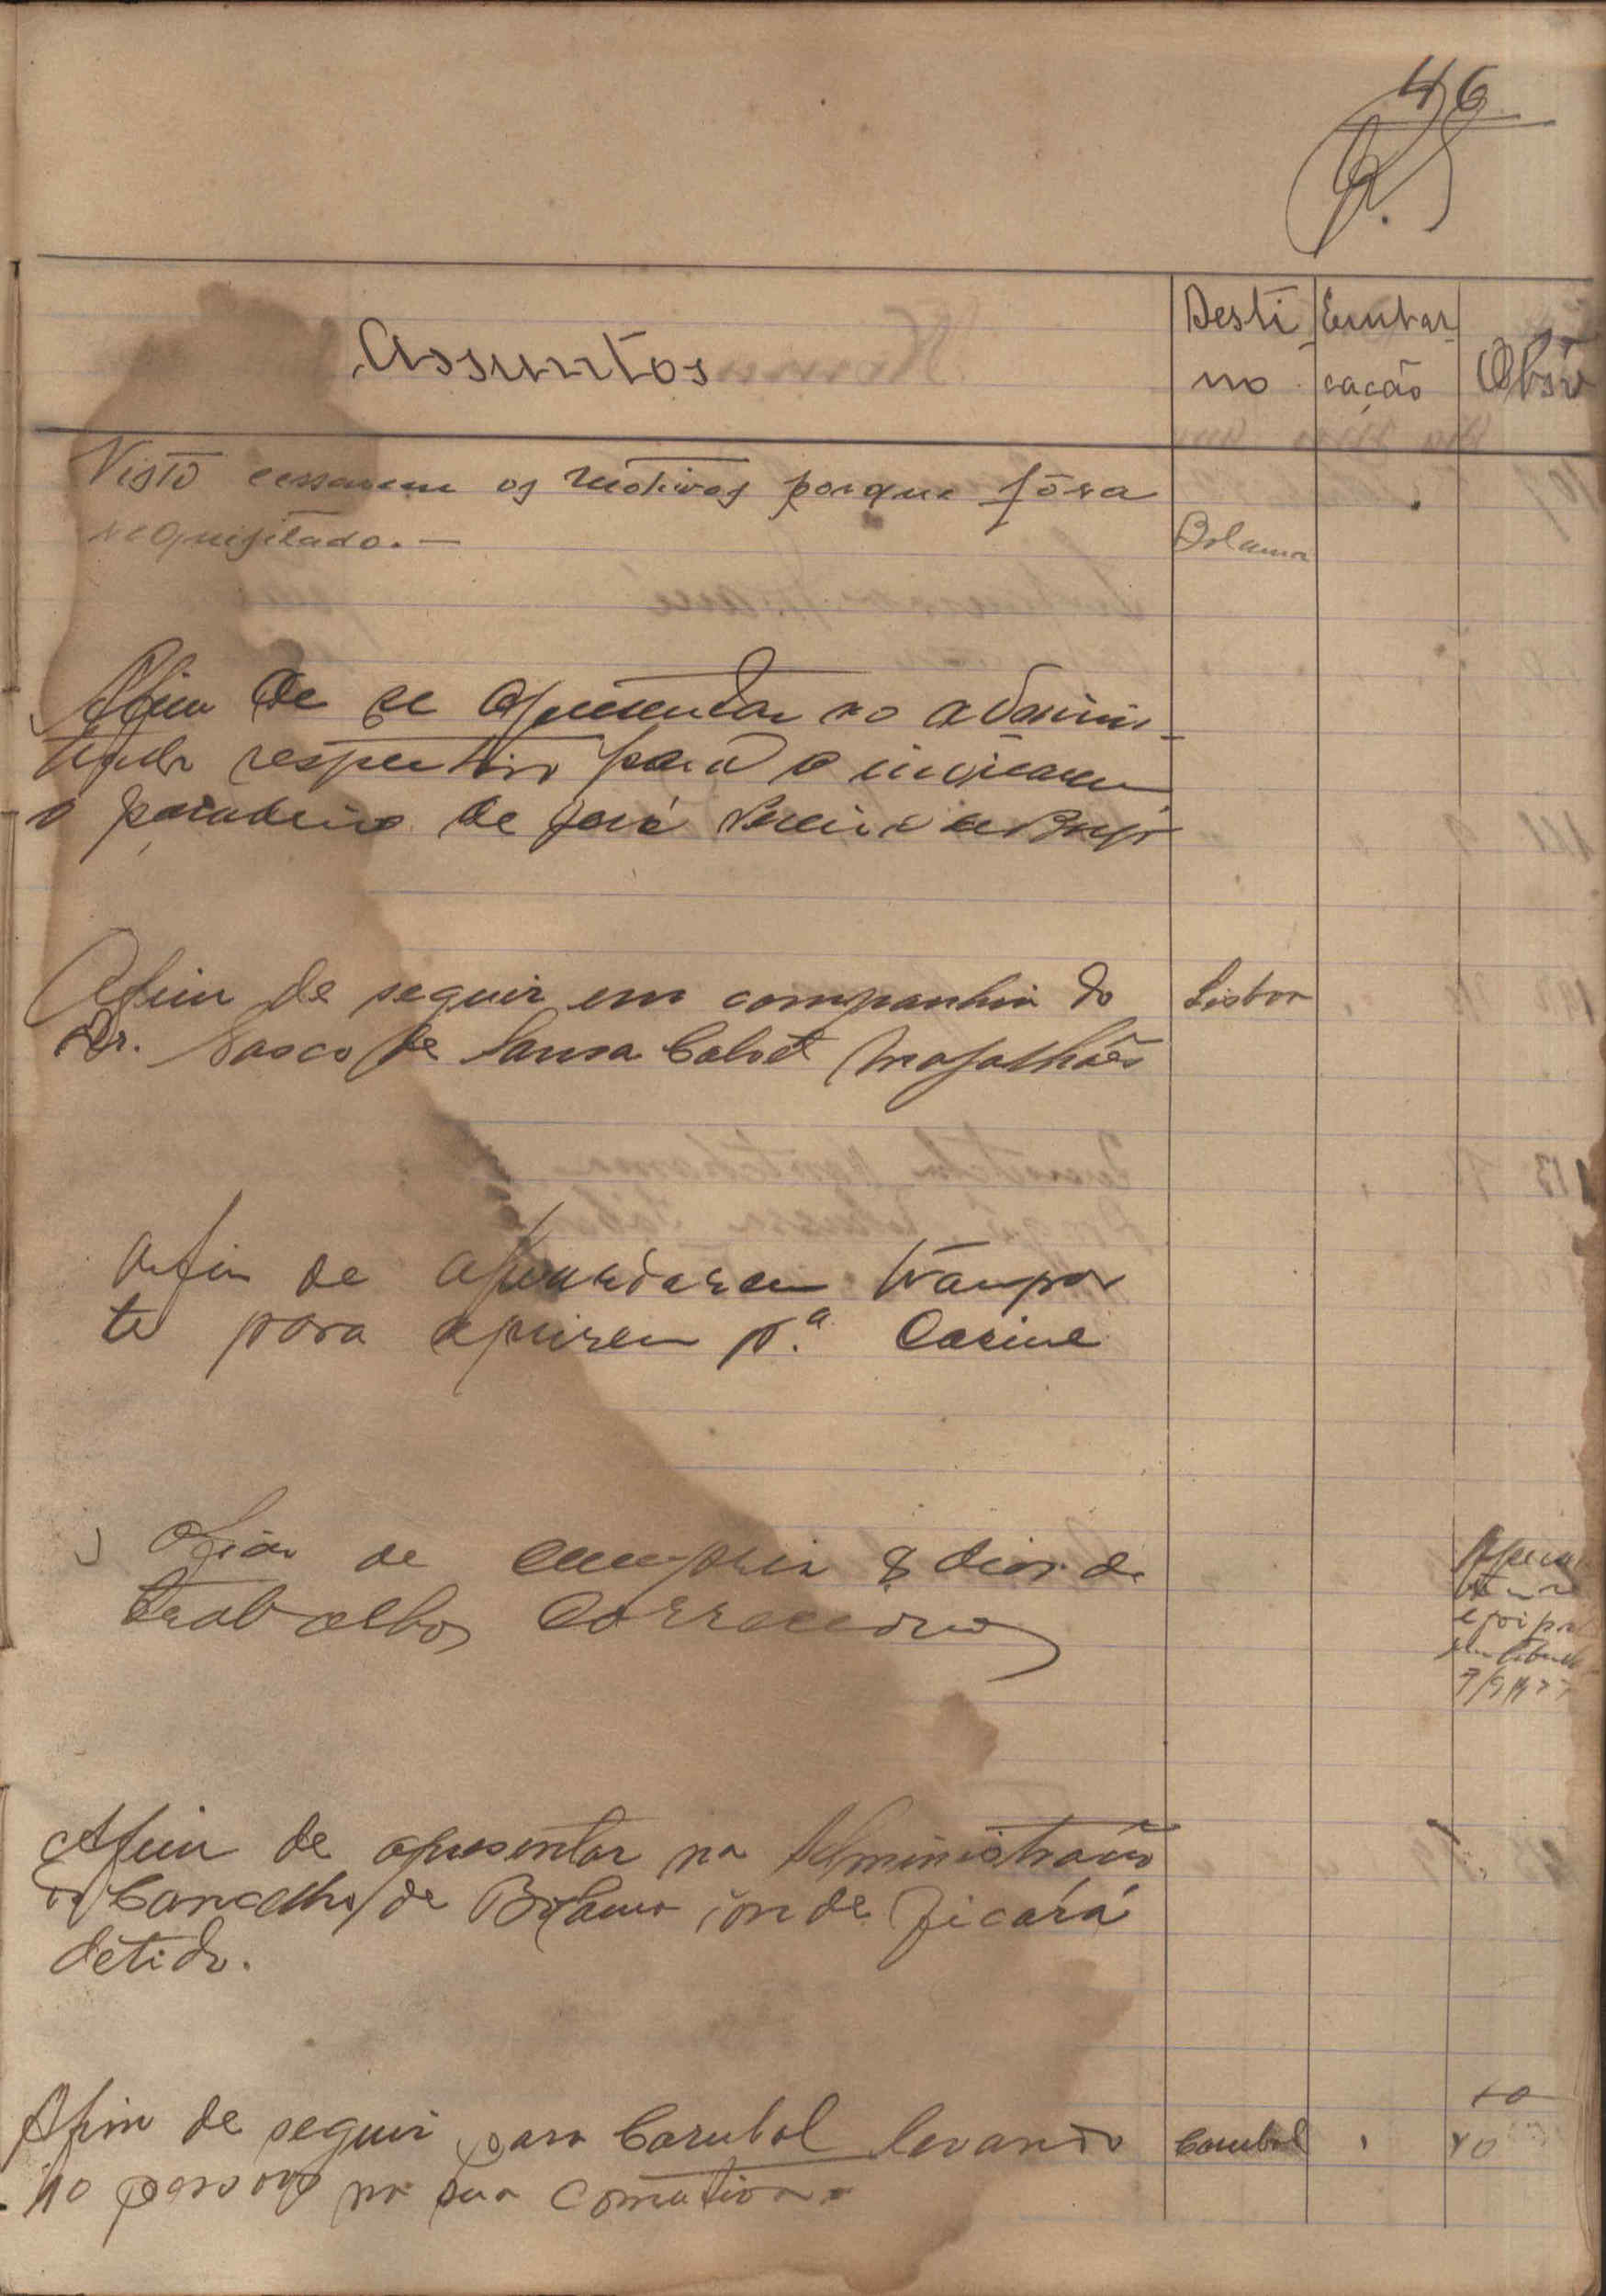 46
Assuntos
Desti-
no
Embar-
cação
Obsv
Visto cessarem os motivos porque fôra
requisitado. —
Bolama
Afim de se apresentar ao adminis-
respectivo para o indicarem
o paradeiro de José Pereira
Afim de seguir em companhia do
Dr. Vasco de Sousa Calvet Magalhães
Lisboa
Afim de aguardarem transpor
te para p.ª
Afim de cumprir 8 dias de
trabalhos correccionaes
e foi
7/9/
Afim de apresentar na Administração
do Concelho de Bolama, onde ficará
detido.
Afim de seguir para Corubal levando
10 pessoas na sua comitiva.
Corubal
10